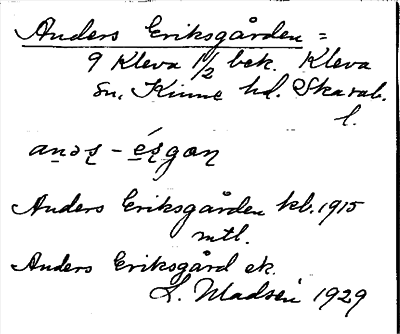 Anders Eriksgården =
9 Kleva 1/2 bek. Kleva
sn, Kinne hd. Skarab.
l.
Anders Eriksgården kb. 1915
mtl.
Anders Eriksgård ek.
L. Madsén 1929